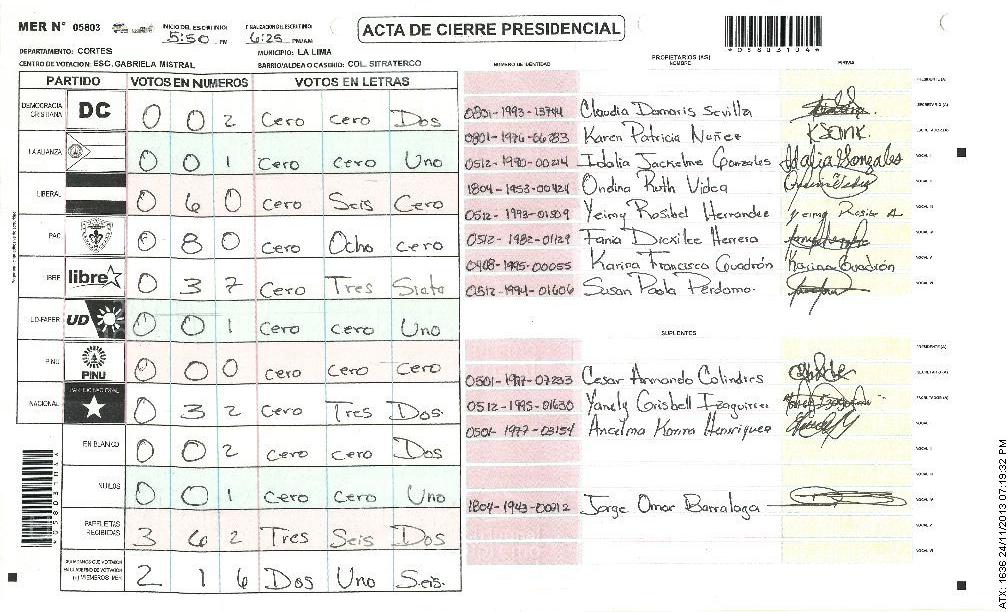 MER N° 05803
INICIO DEL ESCRUTINIO: 5:50 PM
FINALIZACION DEL ESCRUTINIO: 6:25 PM/AM
ACTA DE CIERRE PRESIDENCIAL
DEPARTAMENTO: CORTES
MUNICIPIO: LA LIMA
CENTRO DE VOTACION: ESC. GABRIELA MISTRAL
BARRIO/ALDEA O CASERIO: COL. SITRATERCO
PARTIDO VOTOS EN NUMEROS VOTOS EN LETRAS
DEMOCRACIA CRISTIANA DC 0 0 2 Cero Cero Dos
LA ALIANZA 0 0 1 Cero Cero Uno
LIBERAL 0 6 0 Cero Seis Cero
PAC 0 8 0 Cero Ocho cero
LIBRE libre 0 3 7 Cero Tres Siete
UD-FAPER UD 0 0 1 Cero cero Uno
PINU PINU 0 0 0 cero Cero Cero
NACIONAL PARTIDO NACIONAL 0 3 2 Cero Tres Dos
EN BLANCO 0 0 2 cero Cero Dos
NULOS 0 0 1 Cero Cero Uno
PAPELETAS RECIBIDAS 3 6 2 Tres Seis Dos
CIUDADANOS QUE VOTARON EN CUADERNO DE VOTACION (+) MIEMBROS MER 2 1 6 Dos Uno Seis.
NUMERO DE IDENTIDAD
PROPIETARIOS (AS)
NOMBRE
FIRMA
PRESIDENTE (A)
0801-1993-13744 Claudia Damaris Sevilla SECRETARIO (A)
0801-1976-06283 Karen Patricia Nuñez
0512-1990-00214 Idalia Jackeline Gonzales Idalia Gonzales VOCAL I
1804-1953-00424 Ondina Ruth Videa VOCAL II
0512-1993-01509 Yeimy Rosibel Hernandez VOCAL III
0512-1982-01129 Fania Herrera VOCAL IV
-1995-00055 Karina Francisca Guadrón Karina Guadrón VOCAL V
0512-1994-01606 Susan Paola Perdomo. VOCAL VI
SUPLENTES
PRESIDENTE (A)
0501-1977-07233 Cesar Armando Colindres SECRETARIO (A)
0512-1995-01630 Yanely Grisbell Izaguirre
0501-1977-03154 Ancelma Henriquez VOCAL I
VOCAL II
VOCAL III
1804-1943-00212 Jorge Omar Barralaga VOCAL IV
VOCAL V
VOCAL VI
0580313A4
ATX: 1636 24/11/2013 07:19:32 PM